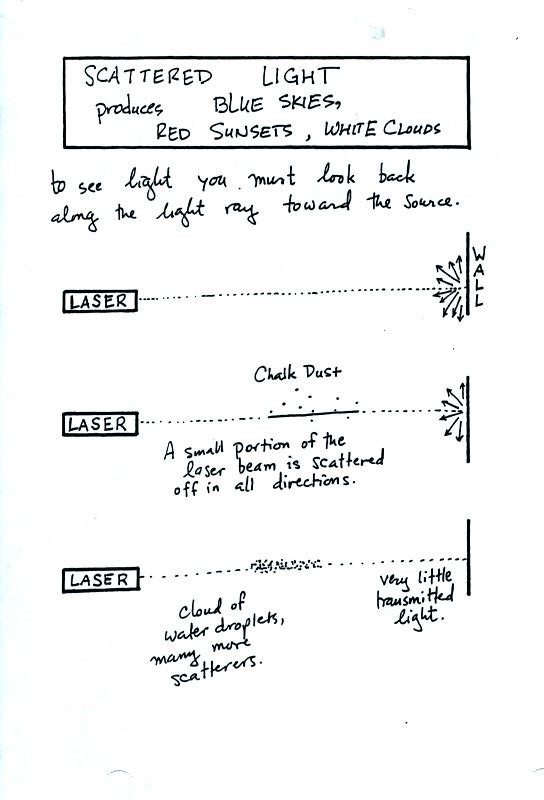 SCATTERED LIGHT
produces BLUE SKIES,
RED SUNSETS, WHITE CLOUDS
to see light you must look back
along the light ray toward the source.
WALL
LASER
Chalk Dust
LASER
A small portion of the
laser beam is scattered
off in all directions.
LASER
cloud of
water droplets,
many more
scatterers.
very little
transmitted
light.